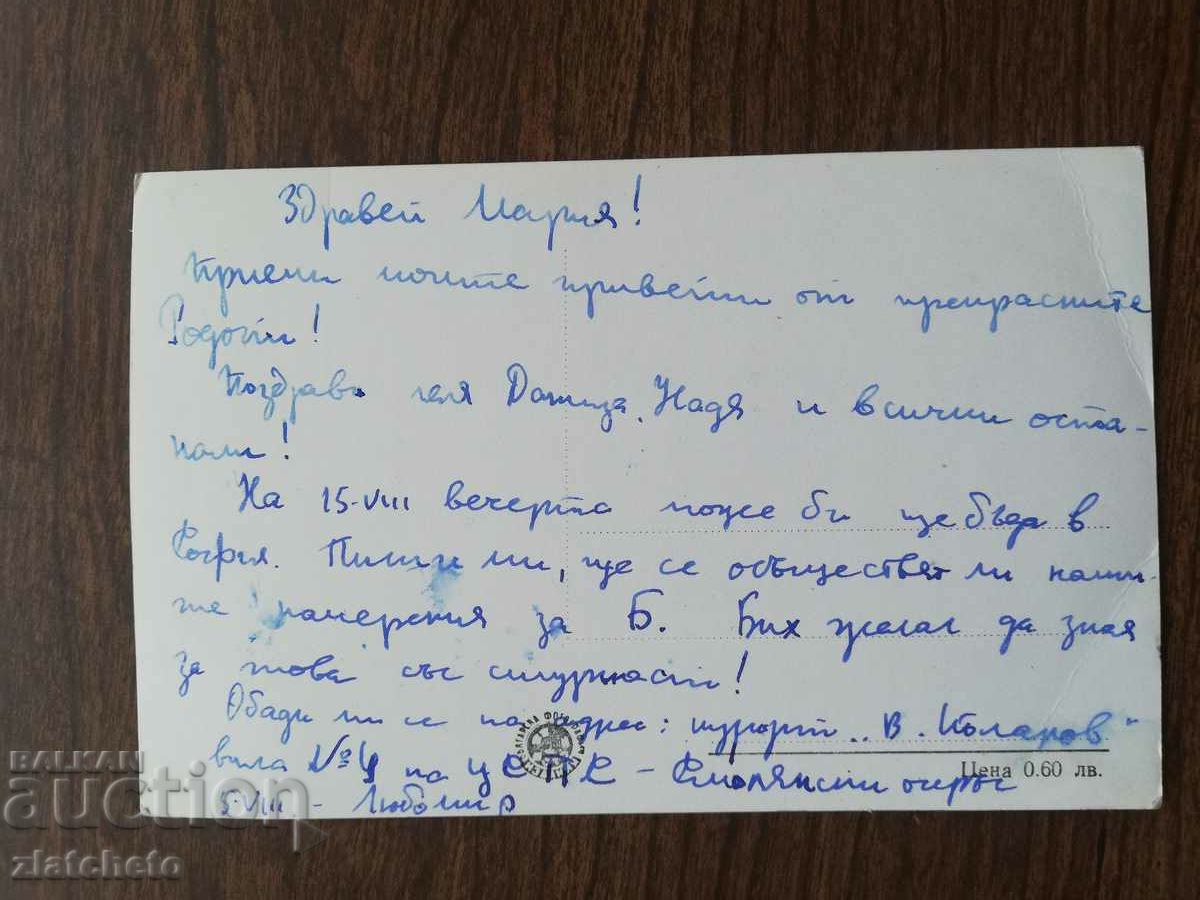 Здравей Мария!
Приеми моите привети от прекрасните
Родопи!
Поздрави леля Даница, Надя и всички оста-
нали!
На 15-VIII вечерта може би ще бъда в
София. Пиши ми, ще се осъществят ли наши-
те намерения за Б. Бих желал да зная
за това със сигурност!
Обади ми се на адрес: курорт „В. Коларов"
вила №4 на ЦСПС - Смолянски окръг
5-VIII - Любомир
Цена 0.60 лв.
BALKAN
auction
zlatcheto